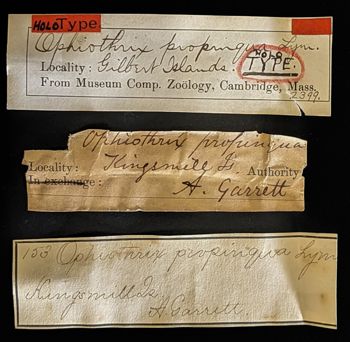 HOLOType
Ophiothrix propinqua Lym.
Locality: Gilbert Islands
HOLO
TYPE.
From Museum Comp. Zoölogy, Cambridge, Mass.
2399.
Ophiothrix propinqua
Locality: Kingsmill Is. Authority
In exchange:
A. Garrett
153 Ophiothrix propinqua Lym
Kingsmill Is.
A. Garrett.